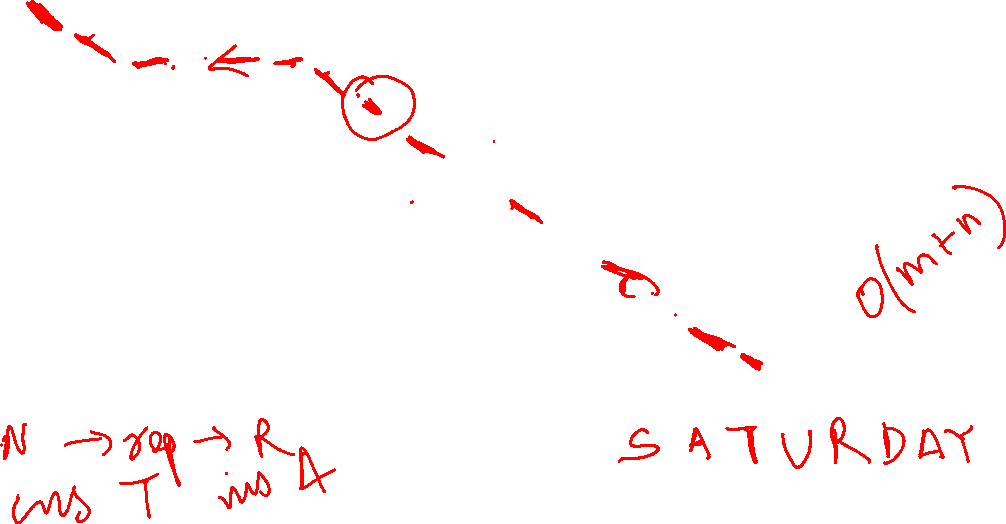 O(m+n)
N → rep → R
ins T ins A
SATURDAY